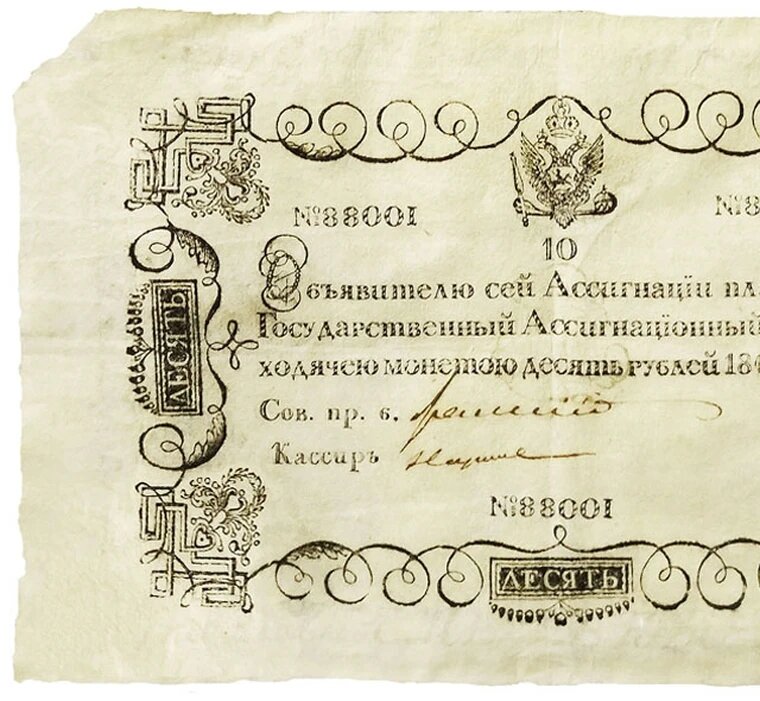 №88001 №8
10
Объявителю сей Ассигнаціи пла
Государственный Ассигнаціонный
ходячею монетою десять рублей 184
ДЕСЯТЬ
Сов. пр. в.
Кассиръ
№88001
ДЕСЯТЬ